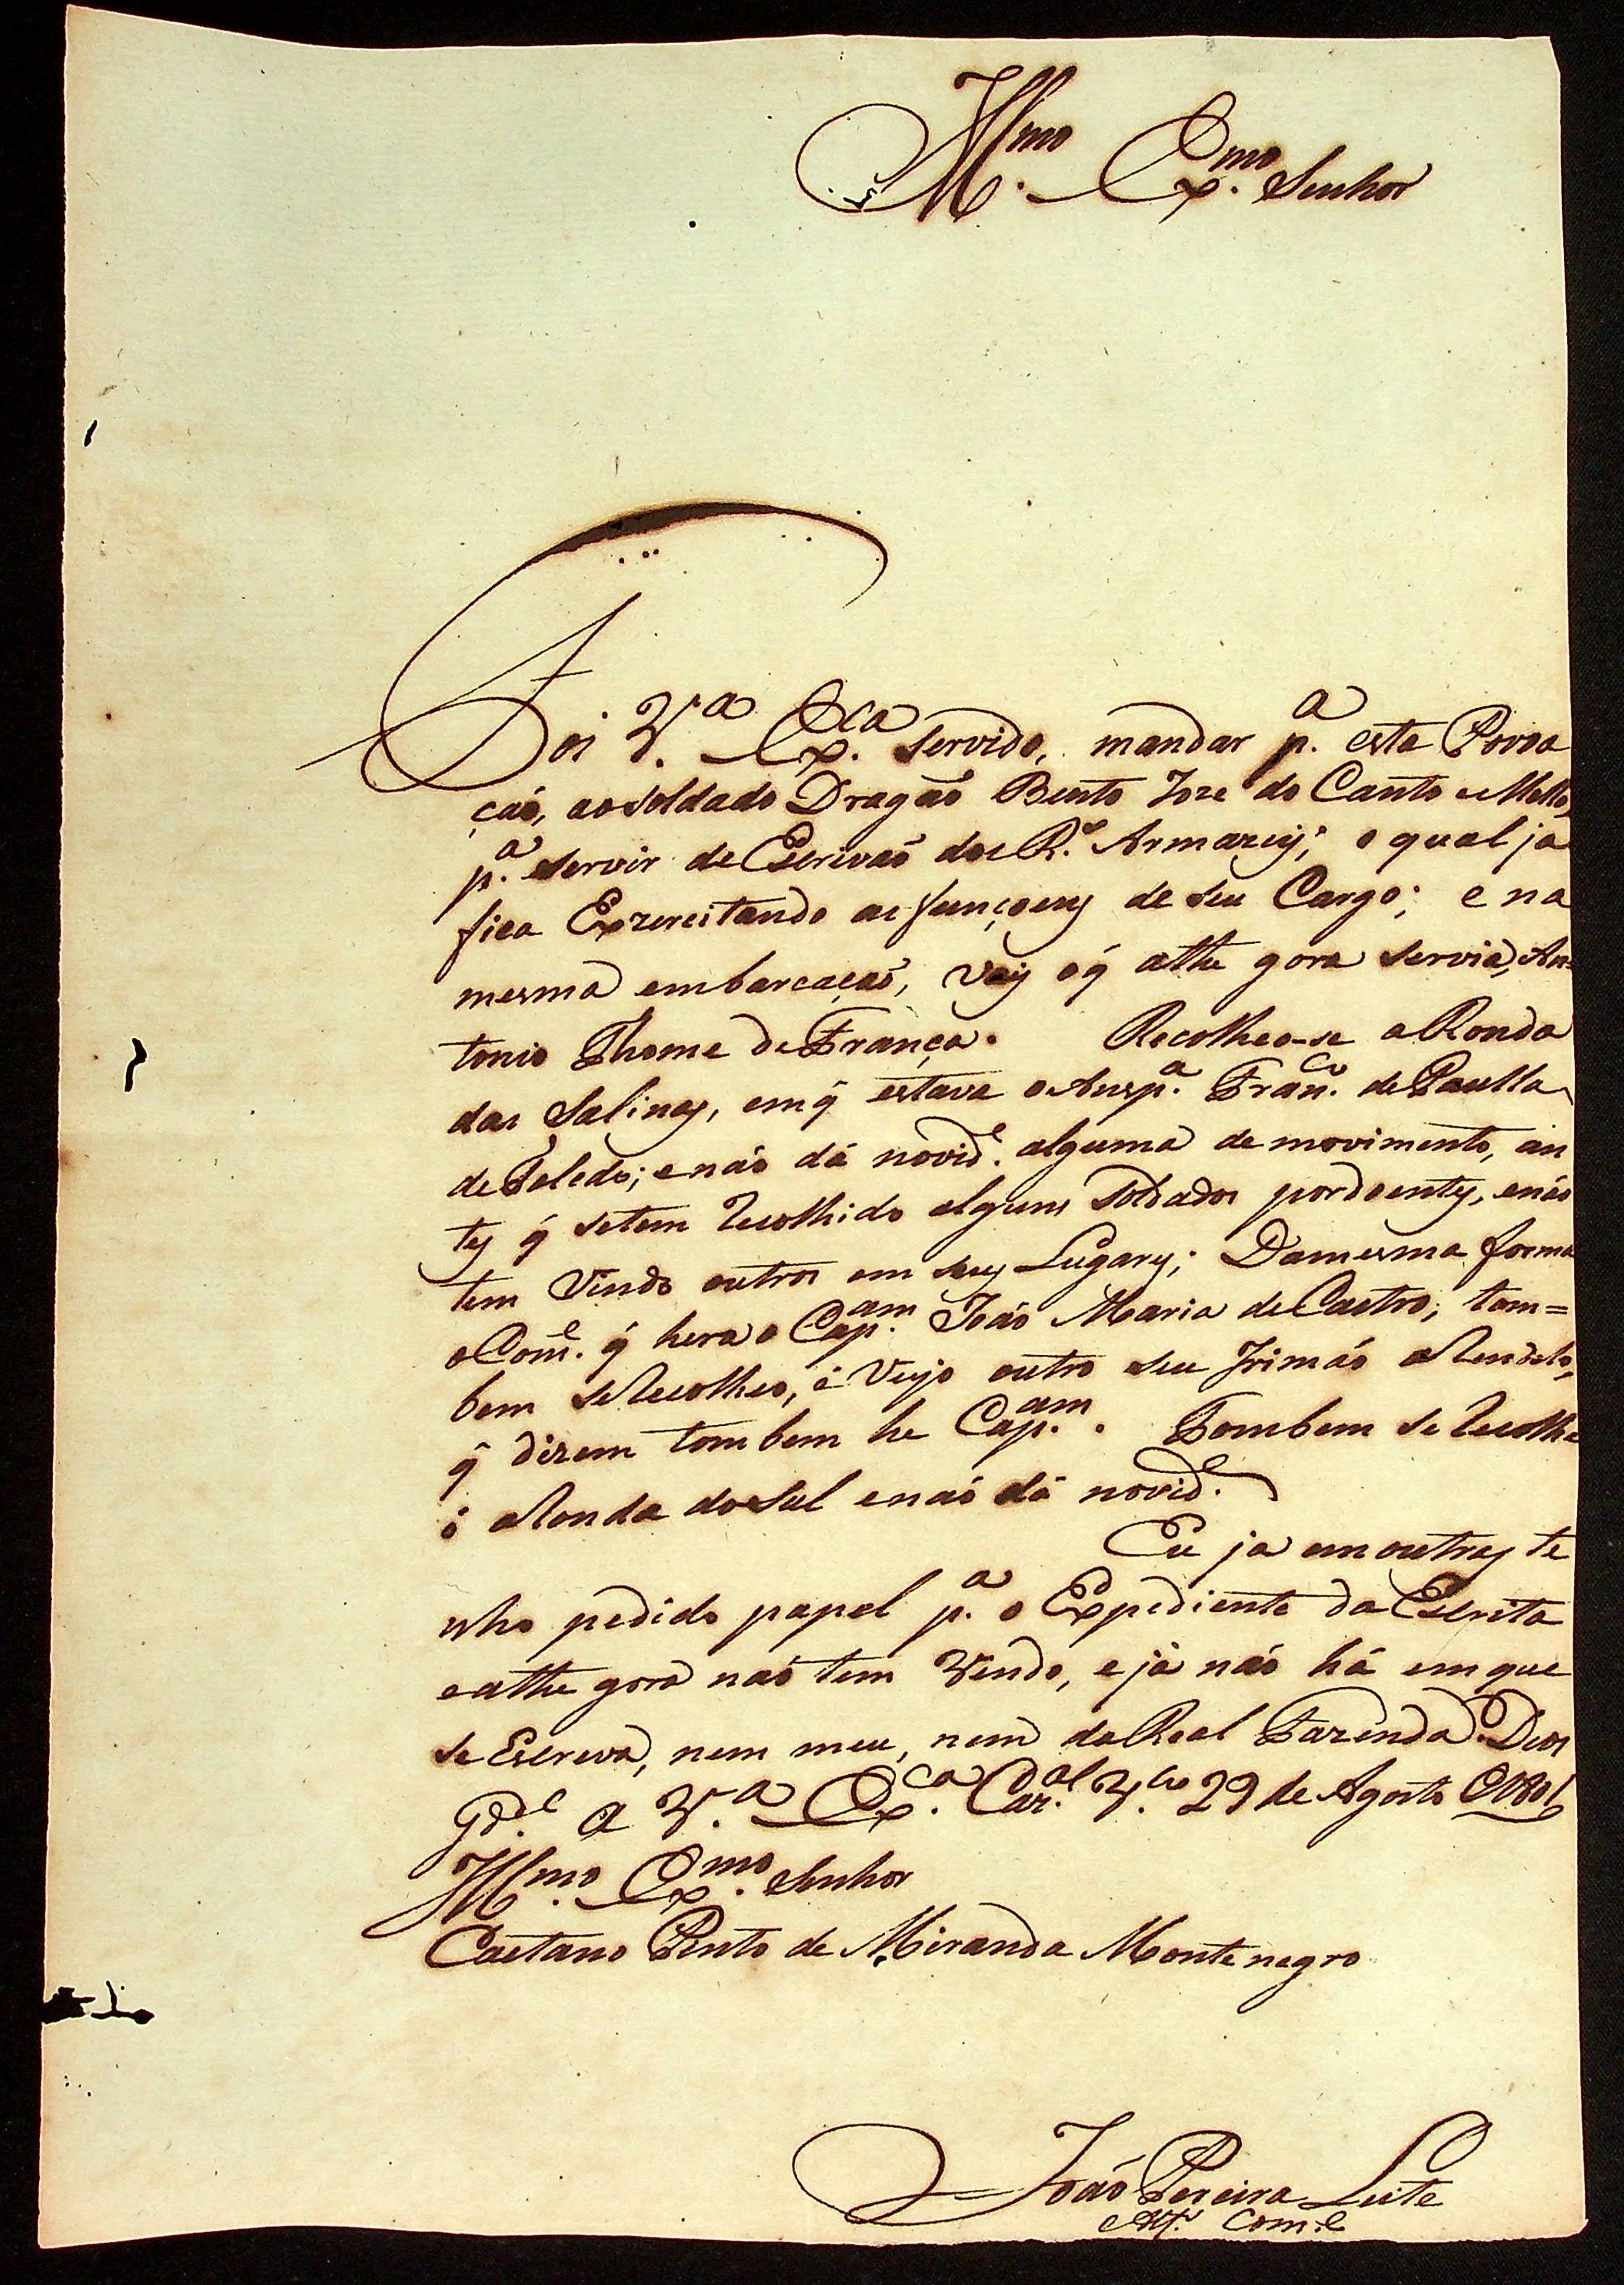 Illmo. Exmo. Senhor
Foi V.a Ex.ca servido, mandar p.a esta Povoa
çaõ, ao soldado Dragaõ Bento Joze do Canto e Mello,
p.a servir de Escrivaõ dos R.s Armazeis; o qual ja
fica Exzercitando as funçoens de seu Cargo; e na
mesma embarcaçaõ, Vay o q̃ athe gora servia, An=
tonio Thome de França. Recolheo-se a Ronda
das Salinas, em q̃ estava o Ansp.a Fran.co de Paulla
de Toledo; e náo dá novid.e alguma de movimento, an
tes q̃ se tem recolhido alguns soldados por doentes, e náo
tem Vindo outros em seus Lugares; Da mesma forma
o Com.e q̃ hera o Cap.am Joáo Maria de Castro; tam=
bem se recolheo, é Veyo outro seu Irmáo a Rendelo,
q̃ dizem tambem he Cap.am. Tambem se recolhe
ó a Ronda do Sul e náo dá novid.e
Eu ja em outras te
nho pedido papel p.a o Expediente da Escrita
e athe gora naõ tem Vindo, e já náo há em que
se Escreva, nem meu, nem da Real Fazenda. Deos
Gd.e a V.a Ex.ca Caz.al V.co 29 de Agosto de 1801
Illmo. Exmo. Senhor
Caetano Pinto de Miranda Montenegro
Joáo Pereira Leite
Com.e